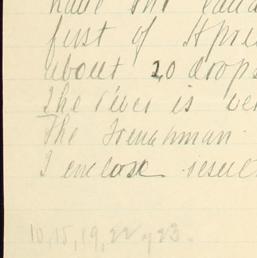 have the
first of Apri
about 20 drops
The river is ver
The Frenchman
I enclose resul
10, 15, 19, 22, 23.